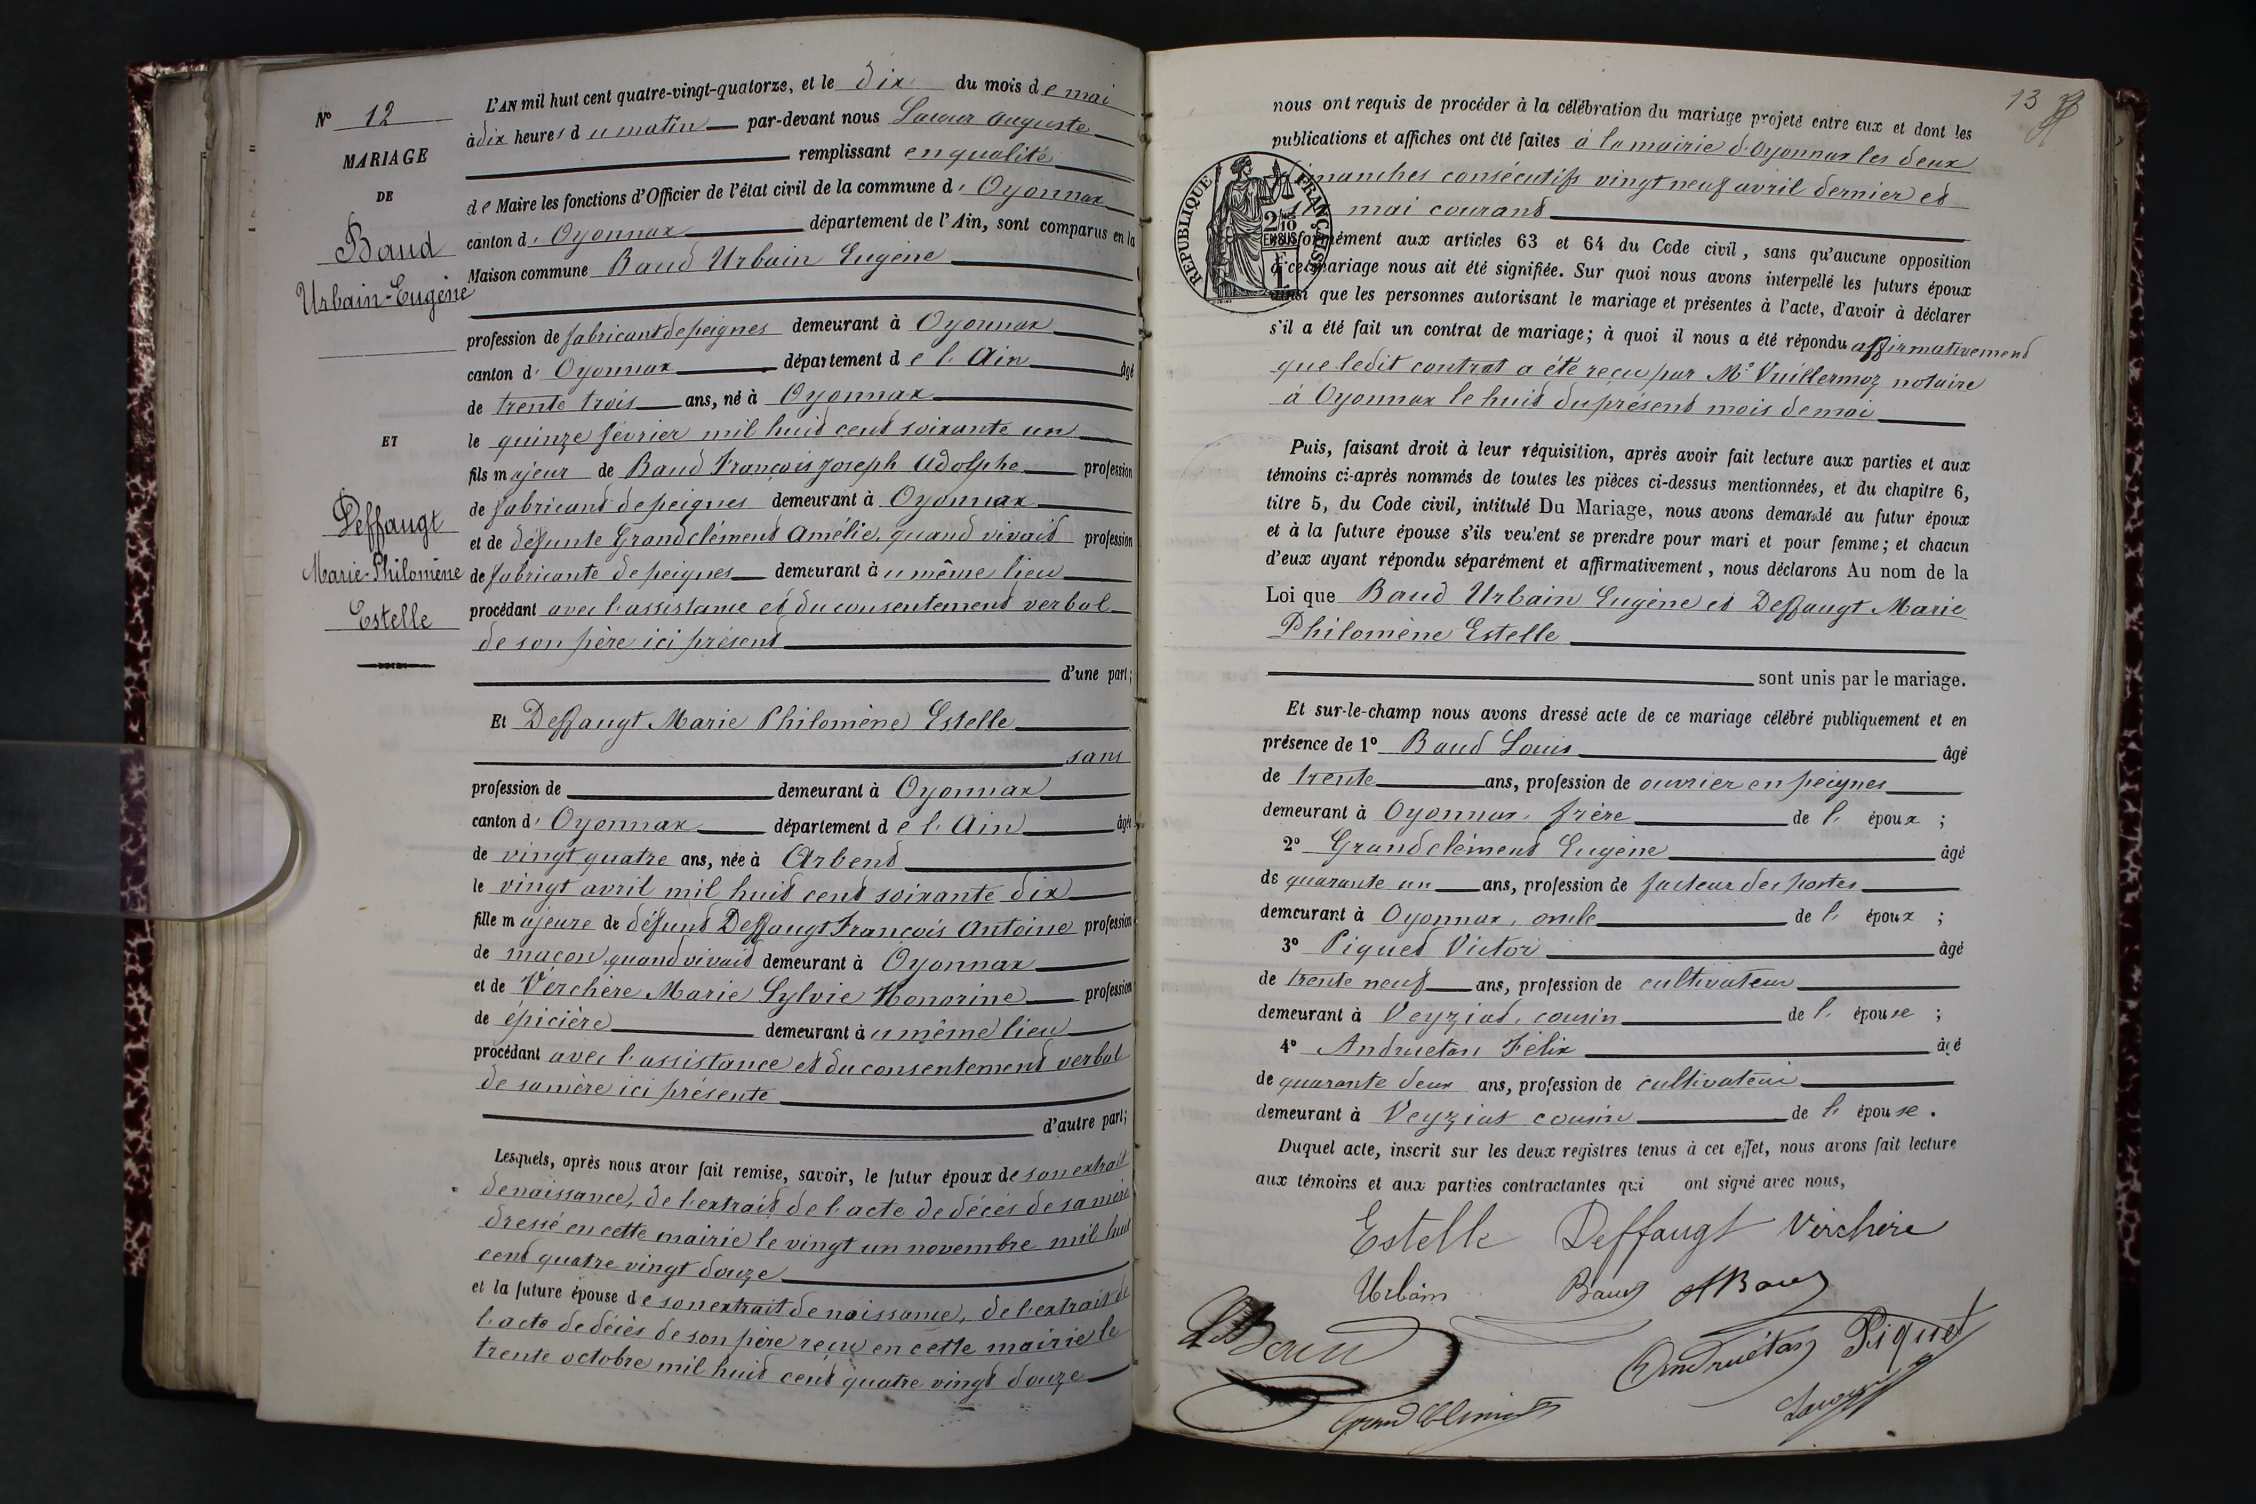 N° 12
MARIAGE
DE
Baud
Urbain-Eugène
ET
Deffaugt
Marie-Philomène
Estelle
L'AN mil huit cent quatre-vingt-quatorze, et le dix du mois de mai
à dix heures du matin par-devant nous Auguste
remplissant en qualité
de Maire les fonctions d'Officier de l'état civil de la commune d'Oyonnax
canton d'Oyonnax département de l'Ain, sont comparus en la
Maison commune Baud Urbain Eugène
profession de fabricant de peignes demeurant à Oyonnax
canton d'Oyonnax département de l'Ain âgé
de trente trois ans, né à Oyonnax
le quinze février mil huit cent soixante un
fils majeur de Baud François Joseph Adolphe profession
de fabricant de peignes demeurant à Oyonnax
et de défunte Grandclément Amélie, quand vivait profession
de fabricante de peignes demeurant au même lieu
procédant avec l'assistance et du consentement verbal
de son père ici présent
d'une part;
Et Deffaugt Marie Philomène Estelle
sans
profession de demeurant à Oyonnax
canton d'Oyonnax département de l'Ain âgée
de vingt quatre ans, née à Arbent
le vingt avril mil huit cent soixante dix
fille majeure de défunt Deffaugt François Antoine profession
de maçon quand vivait demeurant à Oyonnax
et de Verchère Marie Sylvie Honorine profession
de épicière demeurant au même lieu
procédant avec l'assistance et du consentement verbal
de sa mère ici présente
d'autre part;
Lesquels, après nous avoir fait remise, savoir, le futur époux de son extrait
de naissance, de l'extrait de l'acte de décès de sa mère
dressé en cette mairie le vingt un novembre mil huit
cent quatre vingt douze
et la future épouse de son extrait de naissance, de l'extrait de
l'acte de décès de son père reçu en cette mairie le
trente octobre mil huit cent quatre vingt douze
13
nous ont requis de procéder à la célébration du mariage projeté entre eux et dont les
publications et affiches ont été faites à la mairie d'Oyonnax les deux
dimanches consécutifs vingt neuf avril dernier et
mai courant
RÉPUBLIQUE FRANÇAISE
2/10
EN SUS
conformément aux articles 63 et 64 du Code civil, sans qu'aucune opposition
à ce mariage nous ait été signifiée. Sur quoi nous avons interpellé les futurs époux
ainsi que les personnes autorisant le mariage et présentes à l'acte, d'avoir à déclarer
s'il a été fait un contrat de mariage; à quoi il nous a été répondu affirmativement
que ledit contrat a été reçu par Me Vuillermoz notaire
à Oyonnax le huit du présent mois de mai
Puis, faisant droit à leur réquisition, après avoir fait lecture aux parties et aux
témoins ci-après nommés de toutes les pièces ci-dessus mentionnées, et du chapitre 6,
titre 5, du Code civil, intitulé Du Mariage, nous avons demandé au futur époux
et à la future épouse s'ils veulent se prendre pour mari et pour femme; et chacun
d'eux ayant répondu séparément et affirmativement, nous déclarons Au nom de la
Loi que Baud Urbain Eugène et Deffaugt Marie
Philomène Estelle
sont unis par le mariage.
Et sur-le-champ nous avons dressé acte de ce mariage célébré publiquement et en
présence de 1° Baud Louis âgé
de trente ans, profession de ouvrier en peignes
demeurant à Oyonnax, frère de l'époux;
2° Grandclément Eugène âgé
de quarante un ans, profession de facteur des postes
demeurant à Oyonnax, oncle de l'époux;
3° Piquet Victor âgé
de trente neuf ans, profession de cultivateur
demeurant à Veyziat, cousin de l'épouse;
4° Andruétan Félix âgé
de quarante deux ans, profession de cultivateur
demeurant à Veyziat cousin de l'épouse.
Duquel acte, inscrit sur les deux registres tenus à cet effet, nous avons fait lecture
aux témoins et aux parties contractantes qui ont signé avec nous,
Estelle Deffaugt Verchère
Urbain Baud A Baud
L Baud
Andruétan Piquet
Grandclément